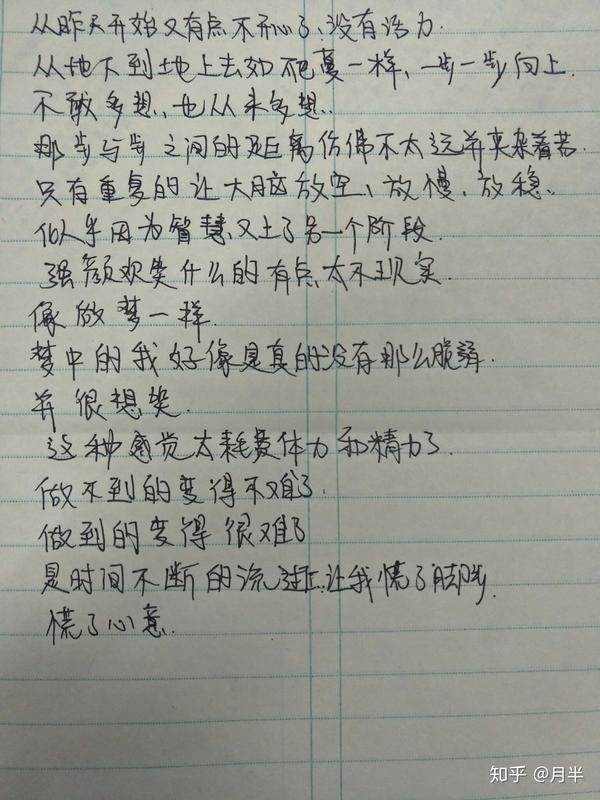 从昨天开始又有点不开心了、没有活力.
从地下到地上去如爬蔓一样,一步一步向上.
不敢多想、也从未多想..
那步与步之间的距离仿佛不太远并夹杂着苦.
只有重复的让大脑放空、放慢、放稳、
似乎因为智慧又上了另一个阶段.
强颜欢笑什么的有点太不现实.
像做梦一样.
梦中的我好像是真的没有那么脆弱.
并很想笑.
这种感觉太耗费体力和精力了.
做不到的变得不难了.
做到的变得很难了
是时间不断的流逝让我慌了脚步.
慌了心意.
知乎 @月半